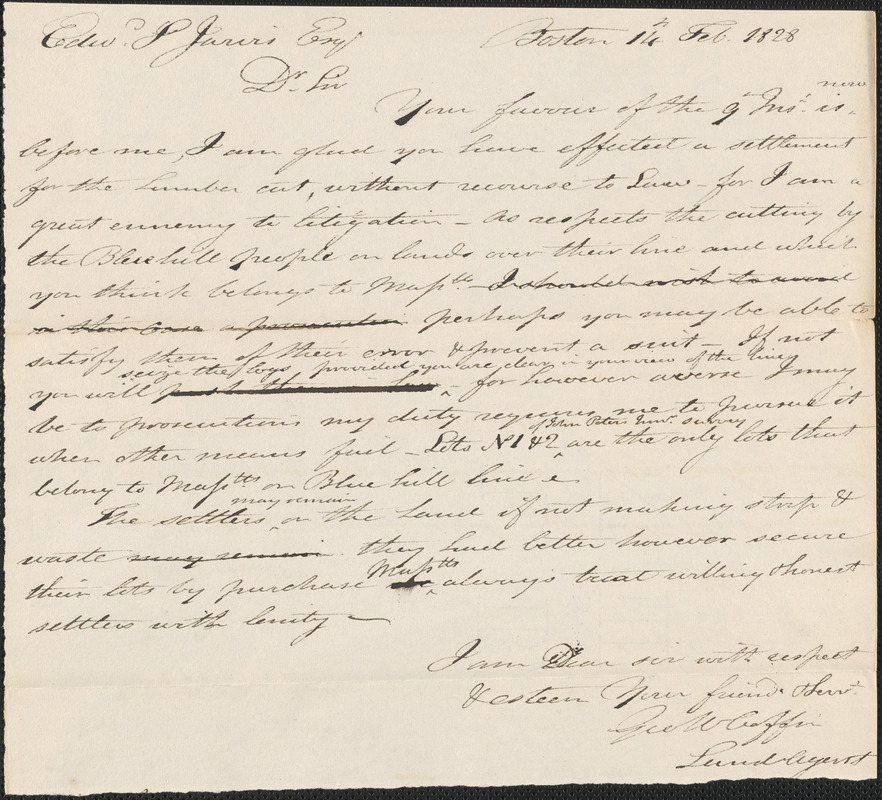 Edwd S Jarvis Esq Boston 14th Feb. 1828
Dr Sir
Your favour of the 9th Inst. is now
before me, I am glad you have effected a settlement
for the lumber cut, without recourse to Law – for I am a
great ennemy to litigation – As respects the cutting by
the Bluehill people on lands over their line and which
you think belongs to Masstts – I should wish to avoid
in this case a prosecution perhaps you may be able to
satisfy them of their error & prevent a suit – If not
seize the logs provided you are clear in your view of the line
you will push them in law – for however averse I may
be to prosecutions my duty requires me to pursue it
of John Peters Junr. survey
when other means fail – Lots No 1 & 2 are the only lots that
belong to Masstts on Blue hill line –
may remain
The settlers on the Land if not making strip &
waste may remain they had better however secure
their lots by purchase Masstts always treat willing & honest
settlers with lenity –
I am Dear sir with respect
& esteem Your friend & Servt.
Geo W Coffin
Land Agent